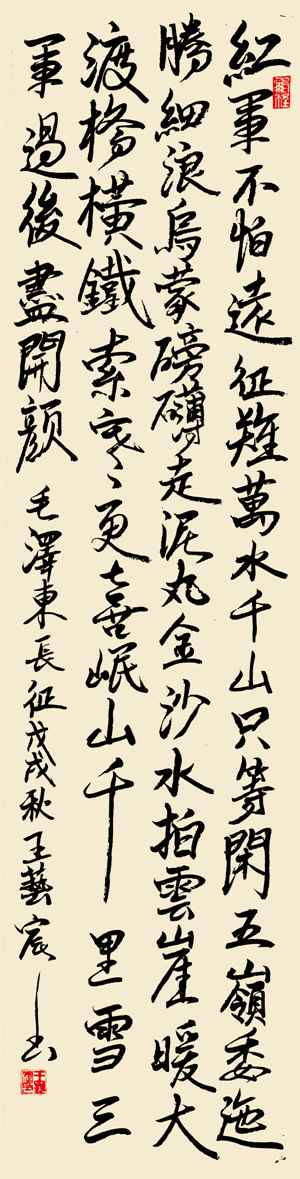 紅軍不怕遠征難萬水千山只等閑五嶺委迤
騰細浪烏蒙磅礴走泥丸金沙水拍雲崖暖大
渡橋橫鐵索寒更喜岷山千里雪三
軍過後盡開顏 毛澤東長征戊戌秋王藝宸書